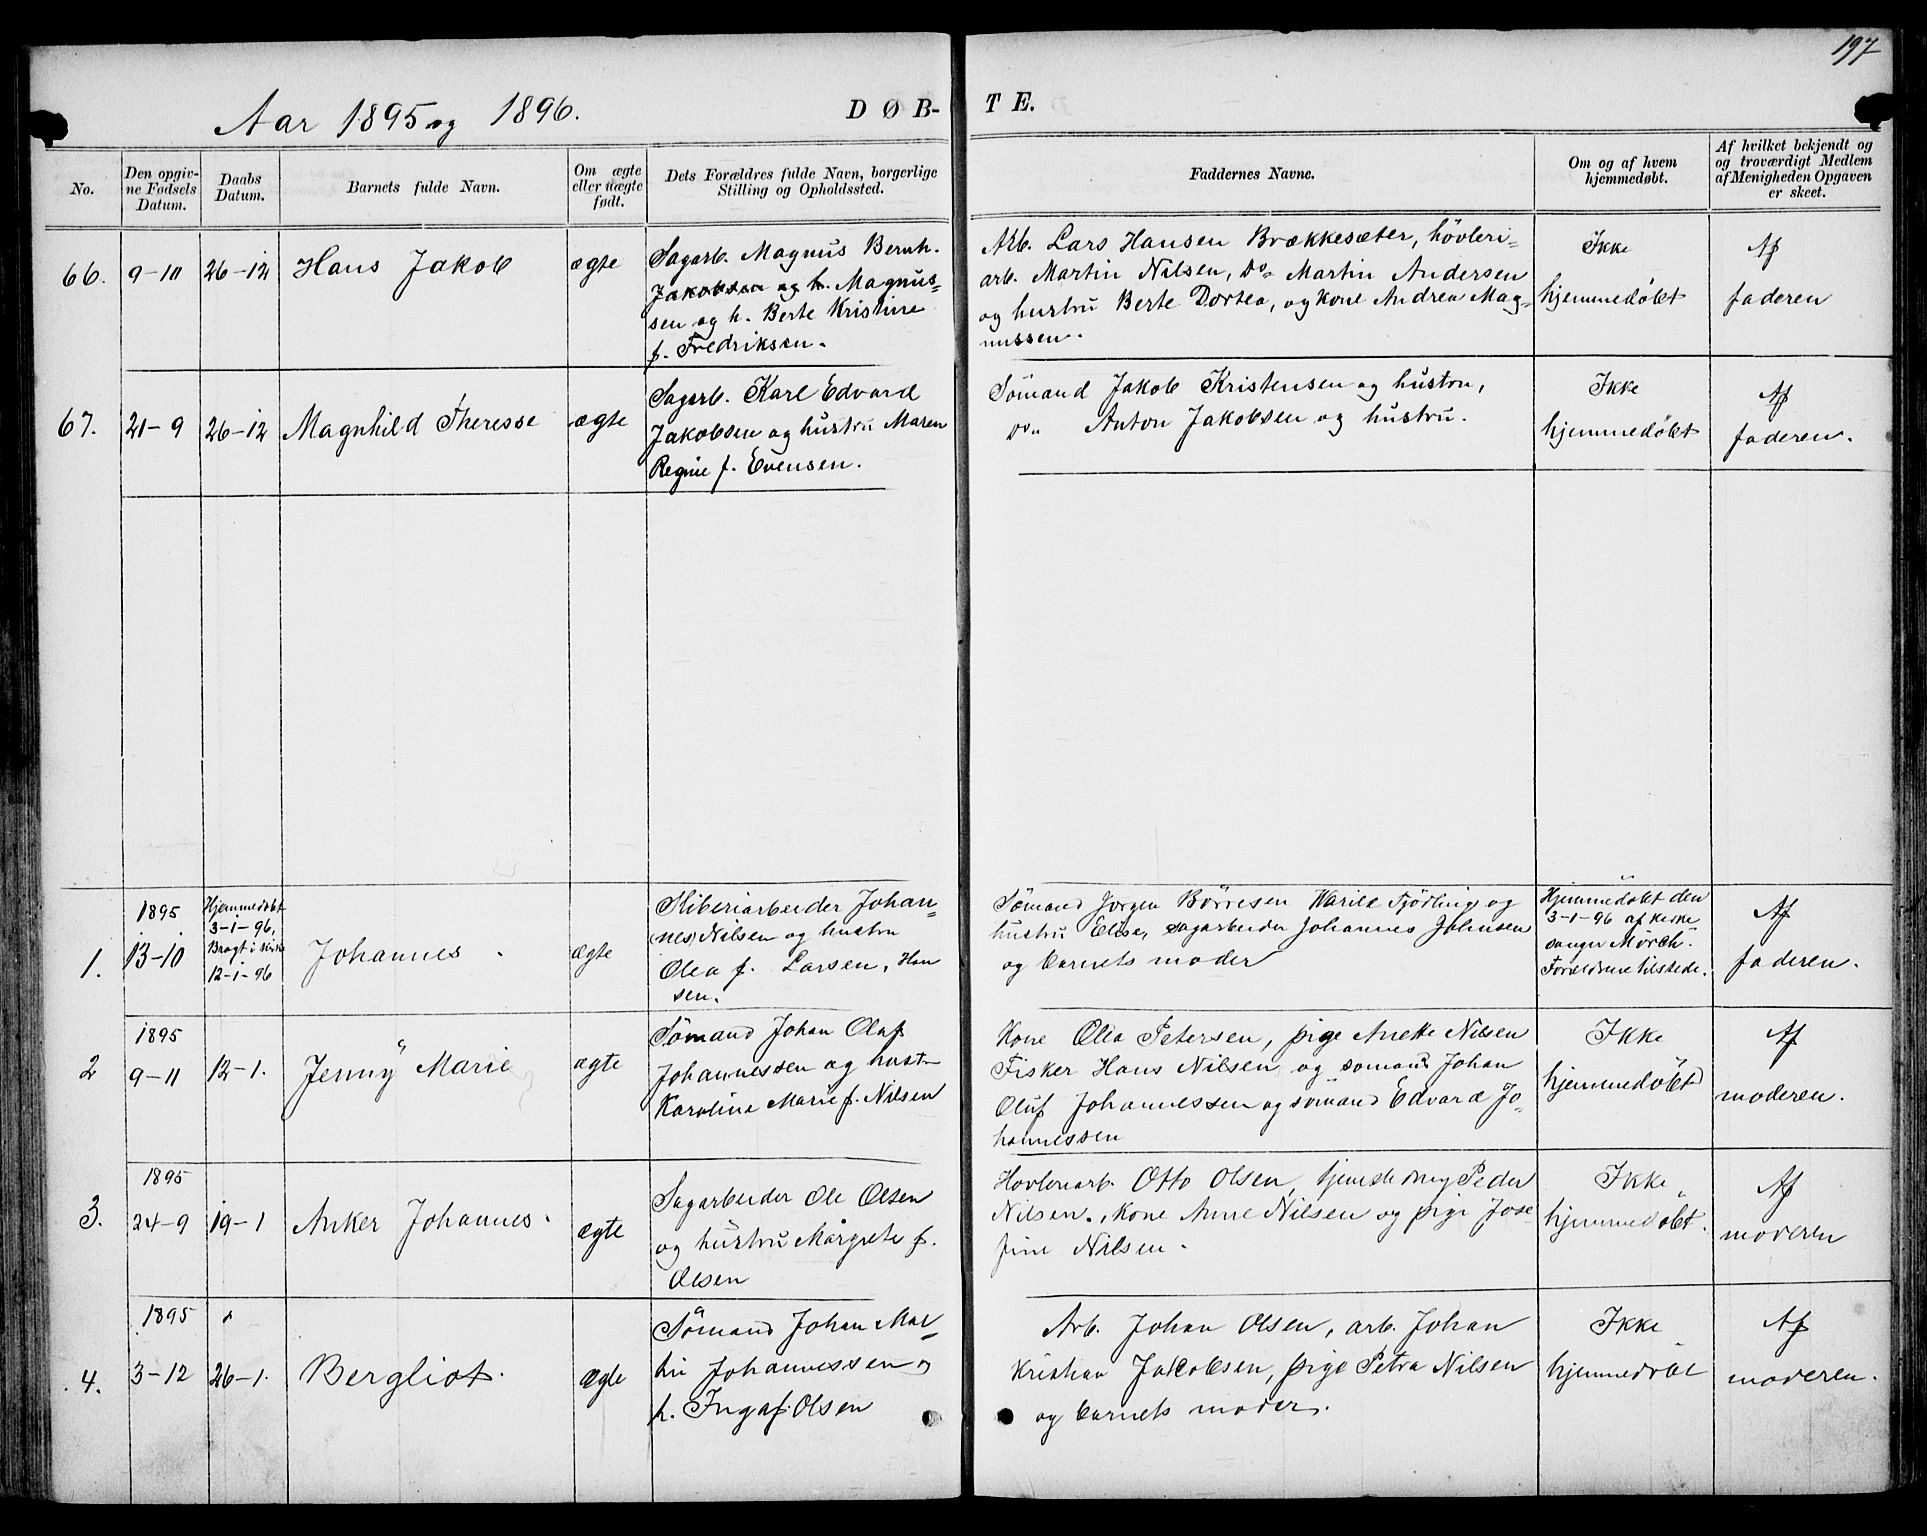 197
Aar 1895 og 1896.
DØB-
TE.
No.
Den opgiv-
ne Fødsels
Datum.
Daabs
Datum.
Barnets fulde Navn.
Om ægte
eller uægte
født.
Dets Forældres fulde Navn, borgerlige
Stilling og Opholdssted.
Faddernes Navne.
Om og af hvem
hjemmedøbt.
Af hvilket bekjendt og
og troværdigt Medlem
af Menigheden Opgaven
er skeet.
66.
9-10
26-12
Hans Jakob
ægte
Sagarb. Magnus Bernh.
Jakobsen og h. Magnus-
sen og h. Berte Kristine
f. Fredriksen.
Arb. Lars Hansen Brækkesæter, høvleri-
arb. Martin Nilsen, Do. Martin Andersen
og hustru Berte Dortea, og kone Andrea Mag-
nussen.
Ikke
hjemmedøbt
Af
faderen
67.
21-9
26-12
Magnhild Theresse
ægte
Sagarb. Karl Edvard
Jakobsen og hustru Maren
Regine f. Evensen.
Sømand Jakob Kristensen og hustru,
Do. Anton Jakobsen og hustru.
Ikke
hjemmedøbt
Af
faderen.
1.
1895
13-10
Hjemmedøbt
3-1-96,
Bragt i kirke
12-1-96
Johannes
ægte
Sliberiarbeider Johan-
nes Nilsen og hustru
Olea f. Larsen, Han
sen.
Sømand Jørgen Børresen og
hustru Elise, sagarbeider Johannes Johnsen
og barnets moder
Hjemmedøbt den
3-1-96 af kirke
sanger Mørch.
Forældrene tilstede.
Af
faderen.
2
1895
9-11
12-1.
Jenny Marie
ægte
Sømand Johan Olaf
Johannessen og hustr
Karolina Marie f. Nilsen
Kone Olea Petersen, pige Anette Nilsen
Fisker Hans Nilsen og sømand Johan
Oluf Johannessen og sømand Edvard Jo-
hannessen
Ikke
hjemmedøbt
Af
moderen.
3.
1895
24-9
19-1
Anker Johannes.
ægte
Sagarbeider Ole Olsen
og hustru Margrete f.
Olsen
Høvleriarb. Otto Olsen, tjenestedreng Peder
Nilsen., kone Anne Nilsen og pige Jose
fine Nilsen.
Ikke
hjemmedøbt.
Af
moderen
4.
1895
3-12
26-1.
Bergliot.
ægte
Sømand Johan Mar-
tin Johannessen og
h. Inga f. Olsen
Arb. Johan Olsen, arb. Johan
Kristian Jakobsen, pige Petra Nilsen
og barnets moder.
Ikke
hjemmedøbt
Af
moderen.